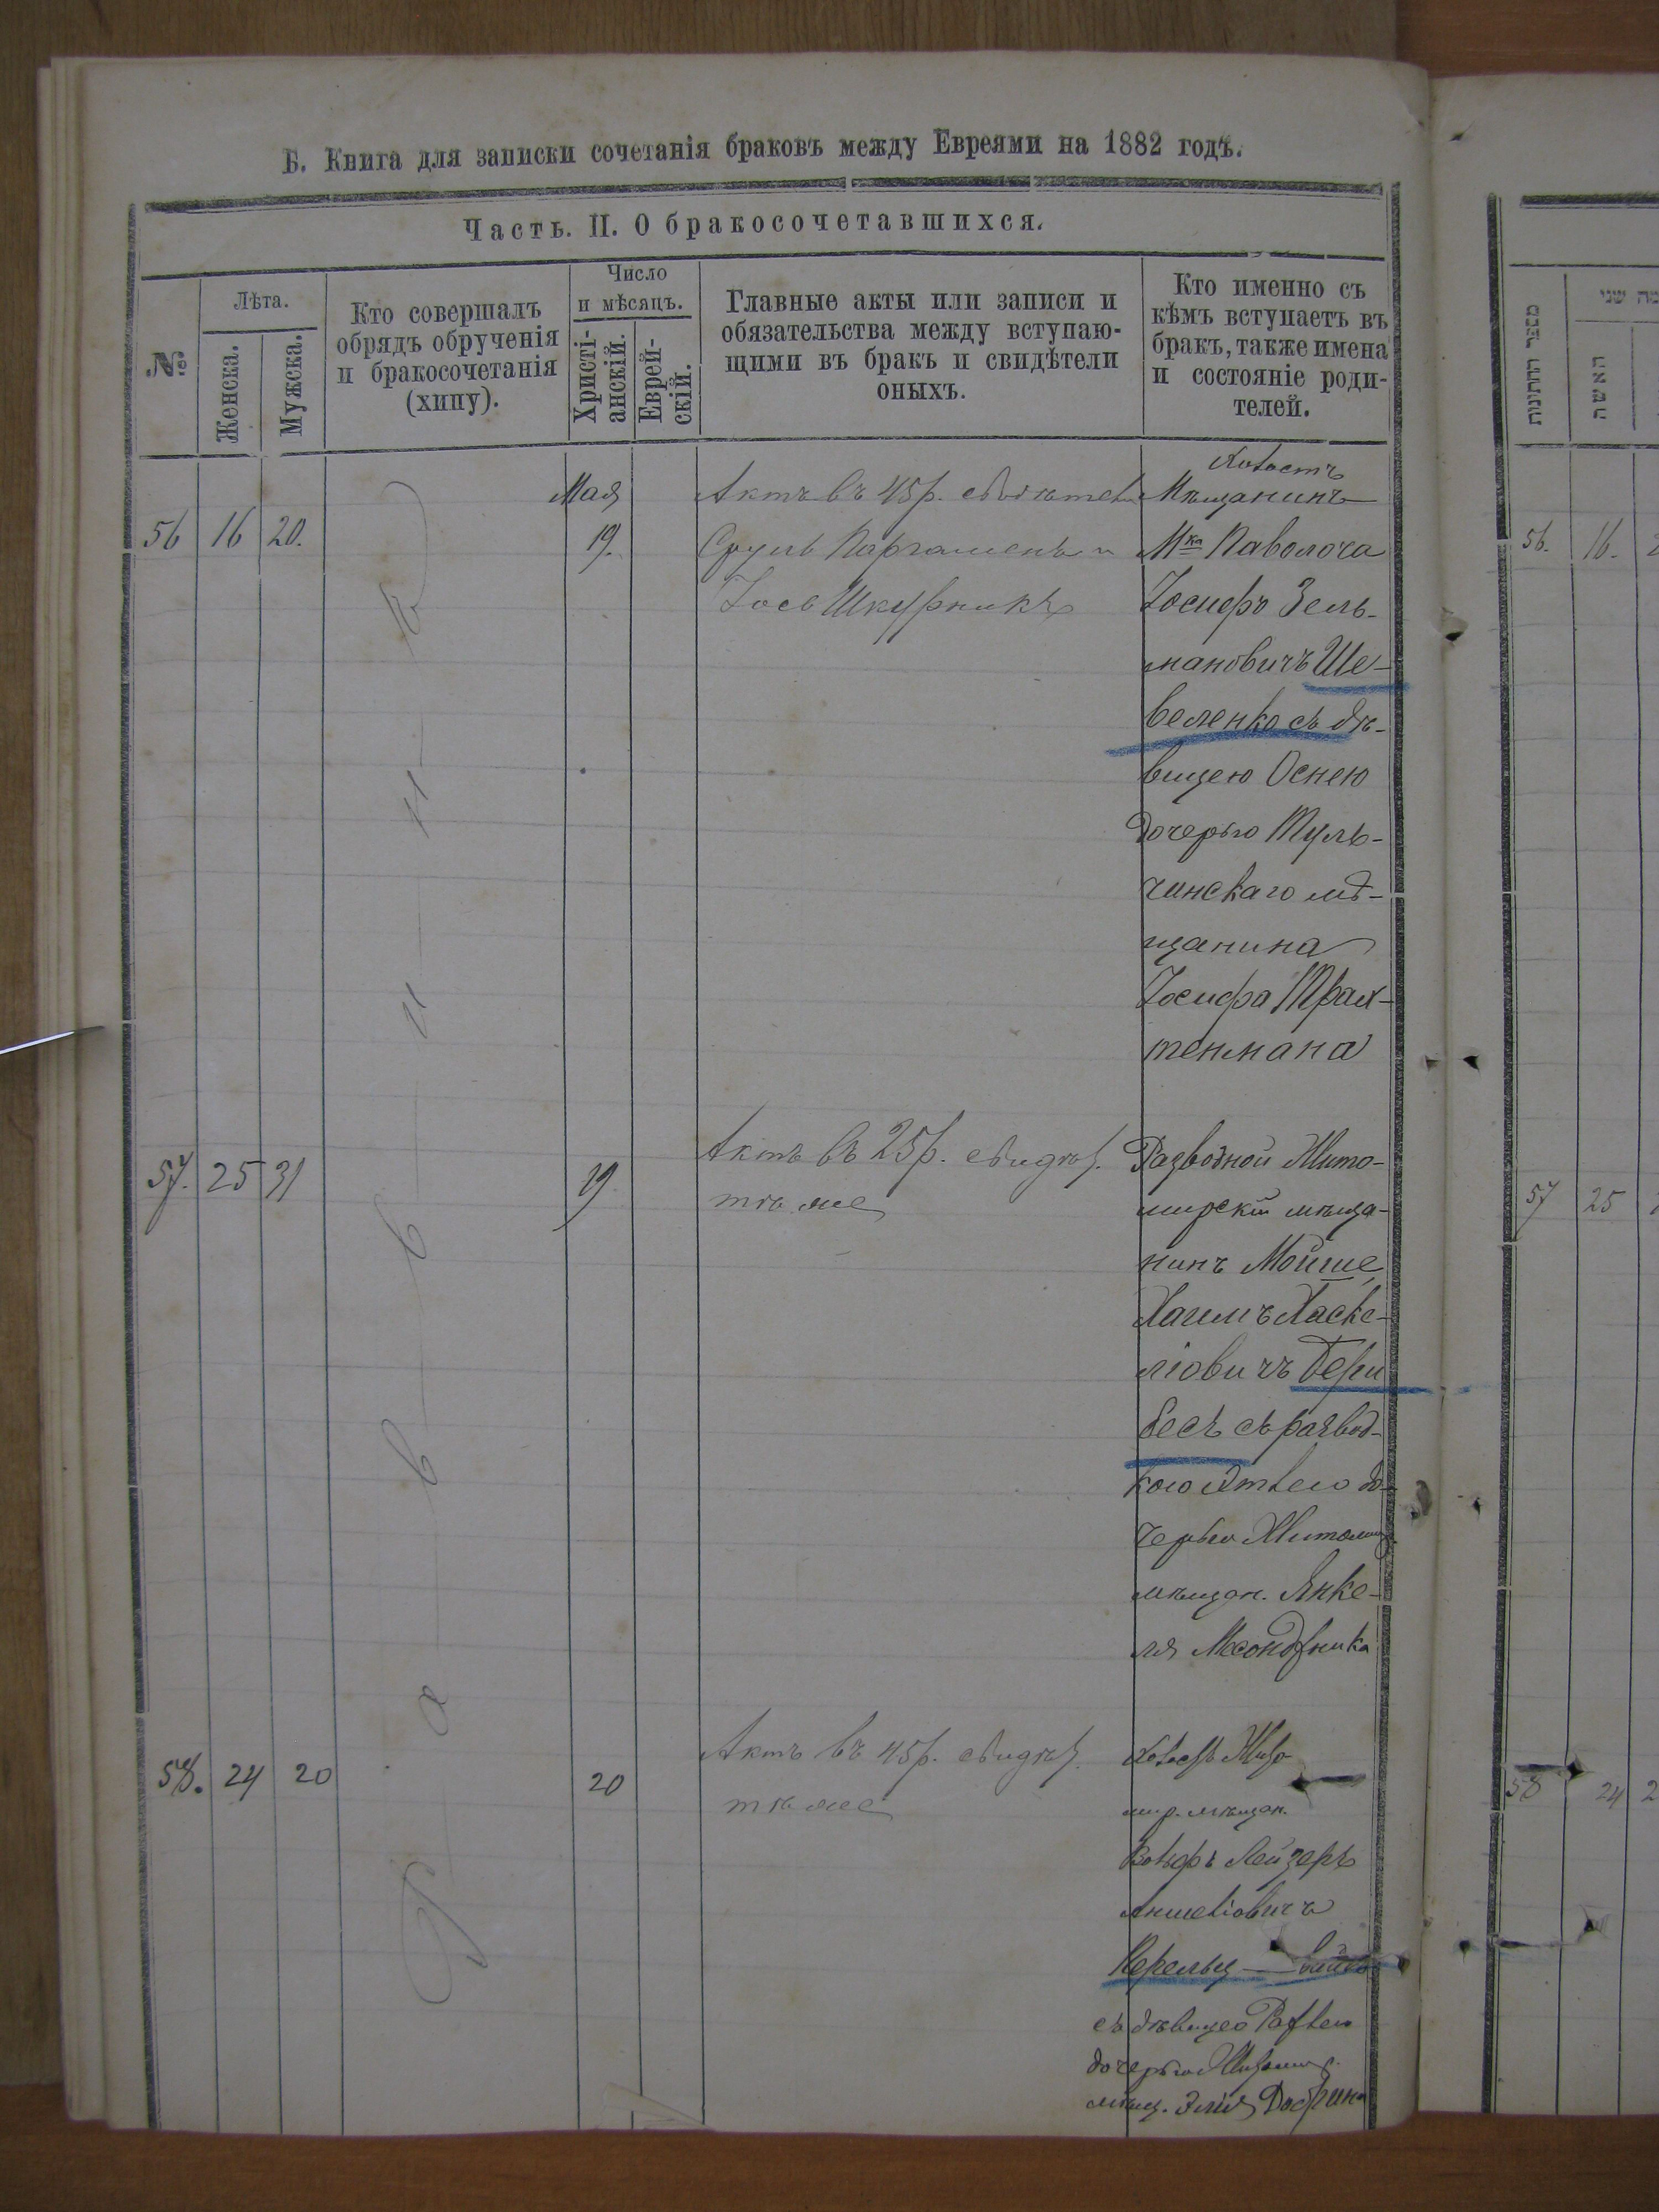 Б. Книга для записки сочетанія браковъ между Евреями на 1882 годъ.
Часть. II. О бракосочетавшихся.
№
Лѣта.
Женска.
Мужска.
Кто совершалъ
обрядъ обрученія
и бракосочетанія
(хипу).
Число
и мѣсяцъ.
Христі-
анскій.
Еврей-
скій.
Главные акты или записи и
обязательства между вступаю-
щими въ бракъ и свидѣтели
оныхъ.
Кто именно съ
кѣмъ вступаетъ въ
бракъ, также имена
и состояніе роди-
телей.
56 16 20.
Раввинъ
Мая
19.
Актъ въ 45 р. свидѣтели
Сруль Пергаменъ и
Іось Шкурникъ
Холостъ
Мѣщанинъ
Мка Паволоча
Іосифъ Зель-
мановичъ Ше-
веленко съ дѣ-
вицею Оснею
дочерью Туль-
чинскаго мѣ-
щанина
Іосифа Трах-
тенмана
57. 25 31
19
Актъ въ 25 р. свидѣт.
тѣ же
Разводной Жито-
мирскій мѣща-
нинъ Мойше
Хаимъ Хаске-
ліовичъ Бери
бесъ съ развод-
кою до-
черью Житомир.
мѣщан. Янке-
ля
58. 24 20
20
Актъ въ 45 р. свидѣт.
тѣ же
Холостъ Жито
мир. мѣщан.
Вольфъ Лейзеръ
Аншеліовичъ
съ дѣвицею
дочерью Житомир.
мѣщ. Элія
מספר החתונות
האשה
56. 16.
57 25
58 24 2